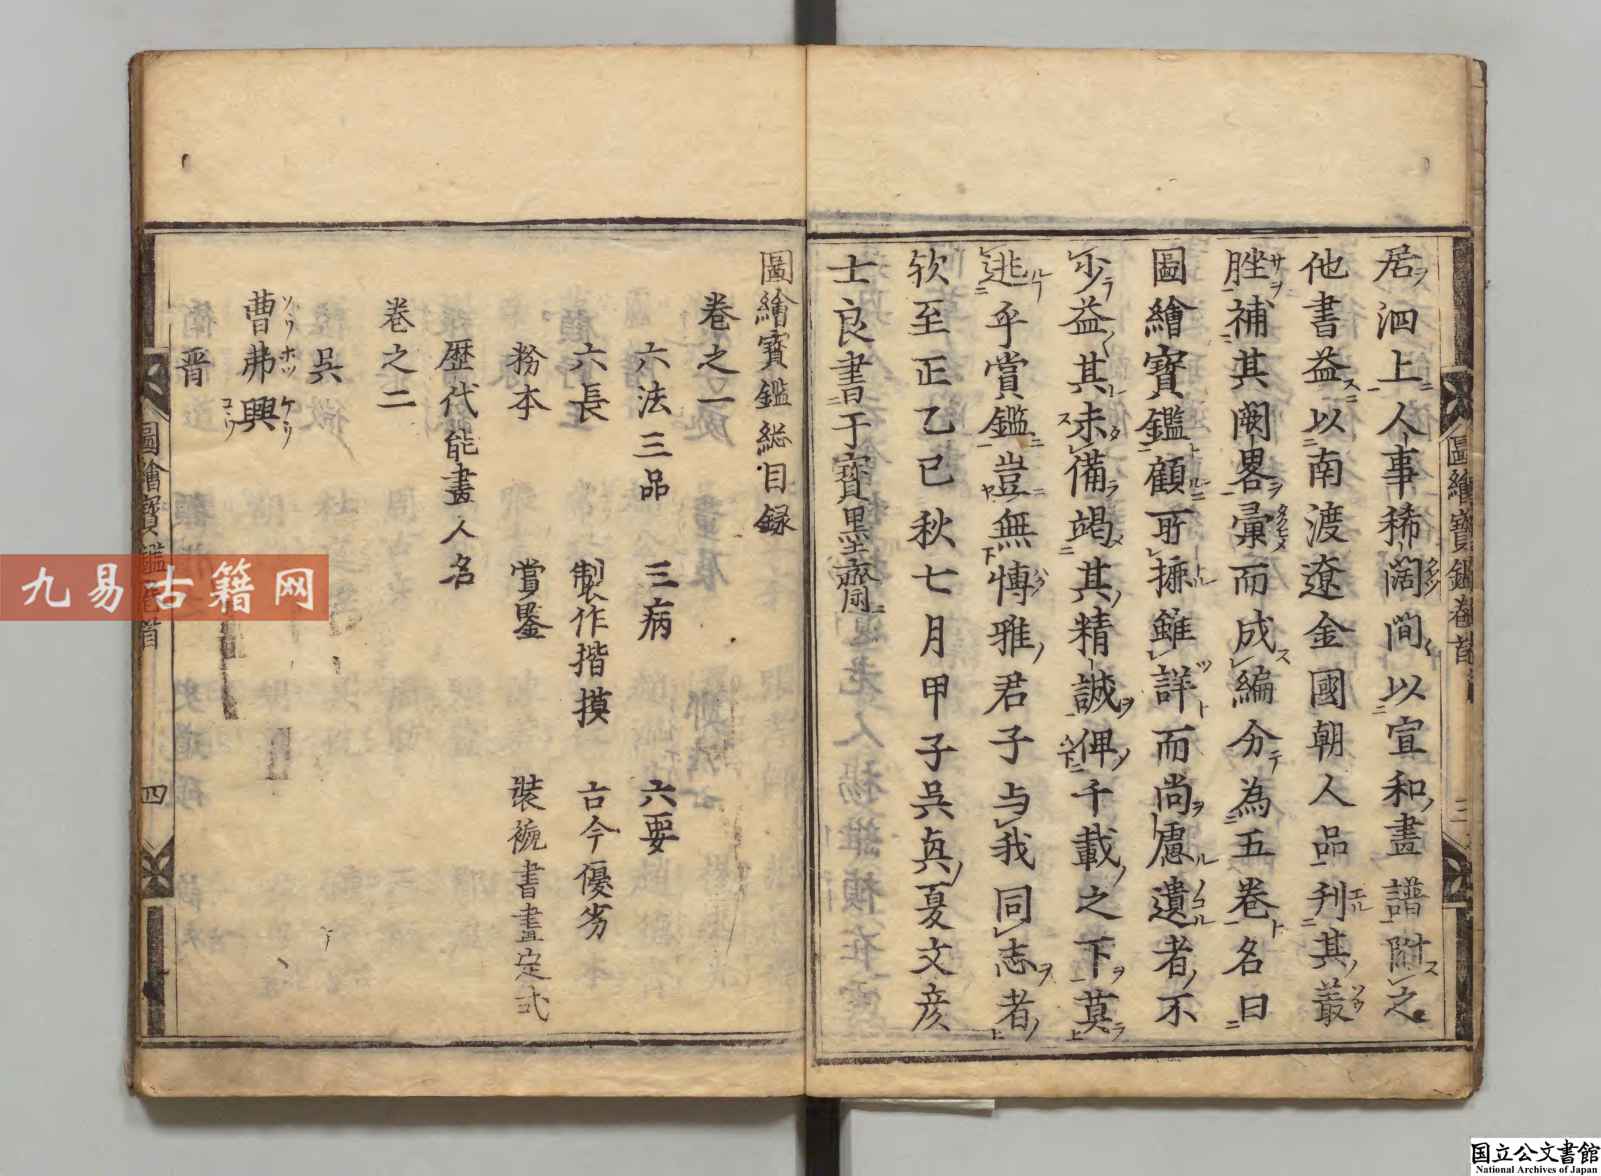 居泗上人事稀闊間以宣和畫譜附之
他書益以南渡遼金國朝人品刋其叢
脞補其闕畧彙而成編分為五卷名曰
圖繪寶鑑顧所摭雖詳而尚慮遺者不
少益其未備竭其精誠俾千載之下莫
逃乎賞鑑豈無愽雅君子与我同志者
欤至正乙巳秋七月甲子吳興夏文彦
士良書于寶墨齋
圖繪寶鑑卷首
三
圖繪寶鑑総目録
卷之一
六法三品 三病 六要
六長 製作揩摸 古今優劣
務本 賞鑒 裝褫書畫定式
歴代能畫人名
卷之二
吳
曹弗興
晋
圖繪寶鑑卷首
四
九易古籍网
国立公文書館
National Archives of Japan